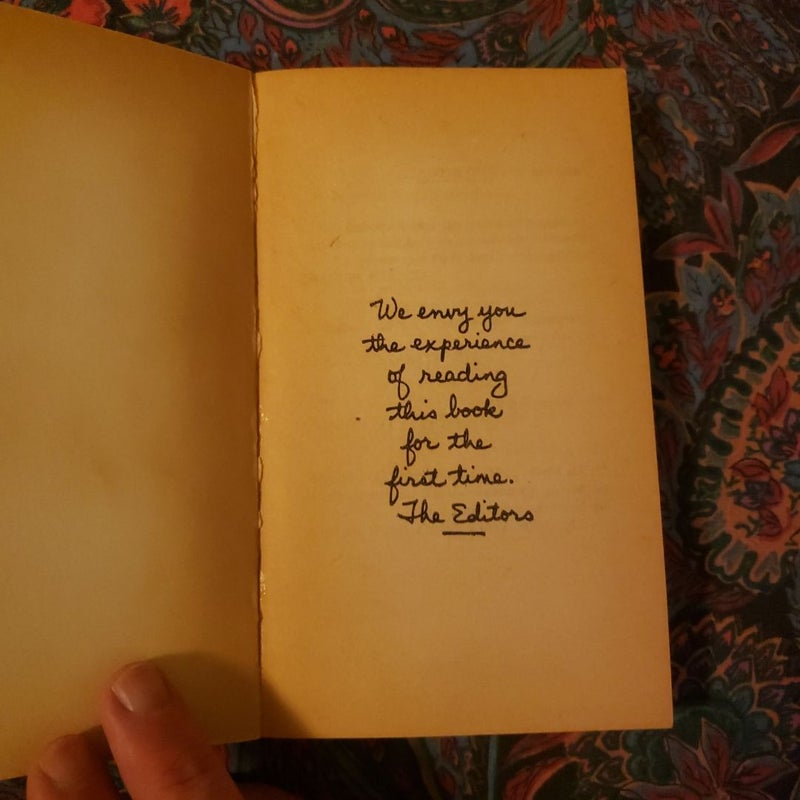 We envy you
the experience
of reading
this book
for the
first time.
The Editors